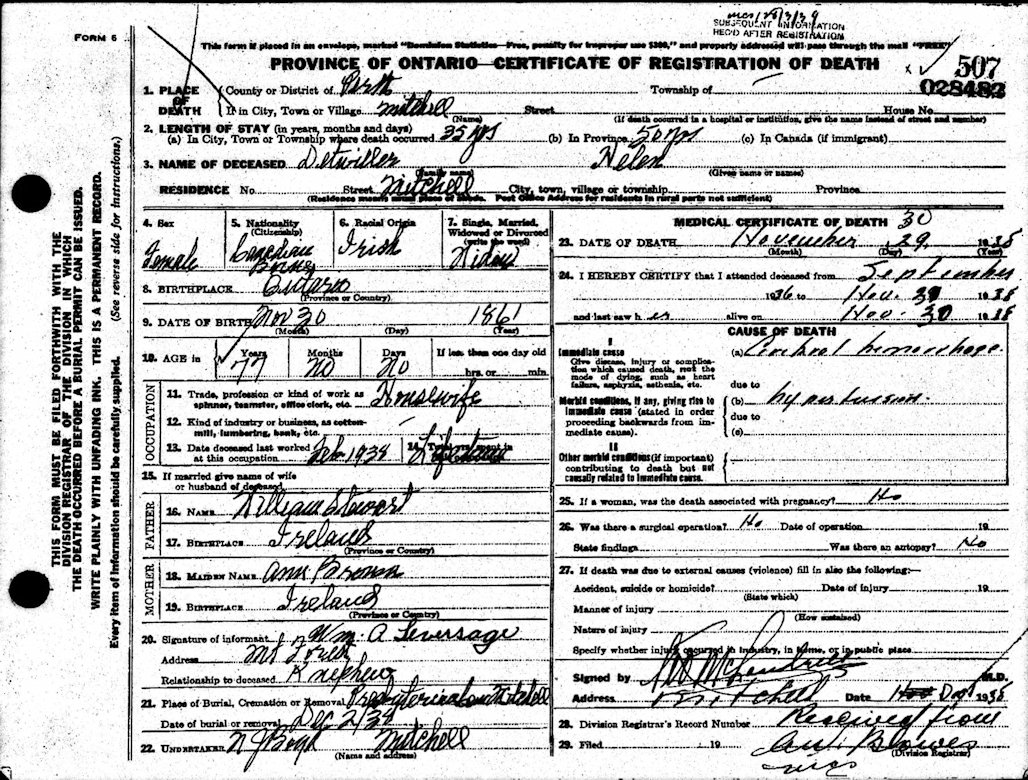 FORM 6
SUBSEQUENT INFORMATION
REC'D AFTER REGISTRATION
This form if placed in an envelope, marked "Dominion Statistics—Free, penalty for improper use $300," and properly addressed will pass through the mail "FREE"
PROVINCE OF ONTARIO—CERTIFICATE OF REGISTRATION OF DEATH
507
028482
1. PLACE OF DEATH County or District of Perth Township of
If in City, Town or Village Mitchell Street House No.
(Name) (If death occurred in a hospital or institution, give the name instead of street and number)
2. LENGTH OF STAY (in years, months and days)
(a) In City, Town or Township where death occurred 35 yrs (b) In Province 50 yrs (c) In Canada (if immigrant)
3. NAME OF DECEASED Detwiller Helen
(Family name) (Given name or names)
RESIDENCE No. Street Mitchell City, town, village or township Province
(Residence means usual place of abode. Post Office Address for residents in rural parts not sufficient)
4. Sex Female
5. Nationality (Citizenship) Canadian
6. Racial Origin Irish
7. Single, Married, Widowed or Divorced (write the word) Widow
8. BIRTHPLACE Ontario
(Province or Country)
9. DATE OF BIRTH Nov 30 1861
(Month) (Day) (Year)
10. AGE in Years 77 Months No Days No If less than one day old hrs. or min.
OCCUPATION
11. Trade, profession or kind of work as spinner, teamster, office clerk, etc. Housewife
12. Kind of industry or business, as cotton-mill, lumbering, bank, etc.
13. Date deceased last worked at this occupation 1938 14. Total Lifetime
15. If married give name of wife or husband of deceased
FATHER
16. NAME William Stewart
17. BIRTHPLACE Ireland
(Province or Country)
MOTHER
18. MAIDEN NAME Ann Brown
19. BIRTHPLACE Ireland
(Province or Country)
20. Signature of informant Wm. A. Leversage
Address Mt Forest
Relationship to deceased nephew
21. Place of Burial, Cremation or Removal Mitchell
Date of burial or removal Dec 2/38
22. UNDERTAKER Mitchell
(Name and address)
MEDICAL CERTIFICATE OF DEATH
30
23. DATE OF DEATH November 29 1938
(Month) (Day) (Year)
24. I HEREBY CERTIFY that I attended deceased from September
1936 to Nov. 1938
and last saw her alive on Nov. 1938
CAUSE OF DEATH
I
Immediate cause
Give disease, injury or complication which caused death, not the mode of dying, such as heart failure, asphyxia, asthenia, etc.
(a) Cerebral hemorrhage
due to
Morbid conditions, if any, giving rise to immediate cause (stated in order proceeding backwards from immediate cause).
(b) hypertension
due to
(c)
II
Other morbid conditions (if important) contributing to death but not causally related to immediate cause.
25. If a woman, was the death associated with pregnancy? No
26. Was there a surgical operation? No Date of operation 19
State findings Was there an autopsy? No
27. If death was due to external causes (violence) fill in also the following:—
Accident, suicide or homicide? Date of injury 19
(State which)
Manner of injury
(How sustained)
Nature of injury
Specify whether injury occurred in industry, in home, or in public place
Signed by M.D.
Address Mitchell Date Dec 1938
28. Division Registrar's Record Number Received from
29. Filed 19
(Division Registrar)
THIS FORM MUST BE FILED FORTHWITH WITH THE
DIVISION REGISTRAR OF THE DIVISION IN WHICH
THE DEATH OCCURRED BEFORE A BURIAL PERMIT CAN BE ISSUED.
WRITE PLAINLY WITH UNFADING INK. THIS IS A PERMANENT RECORD.
Every item of information should be carefully supplied. (See reverse side for instructions.)